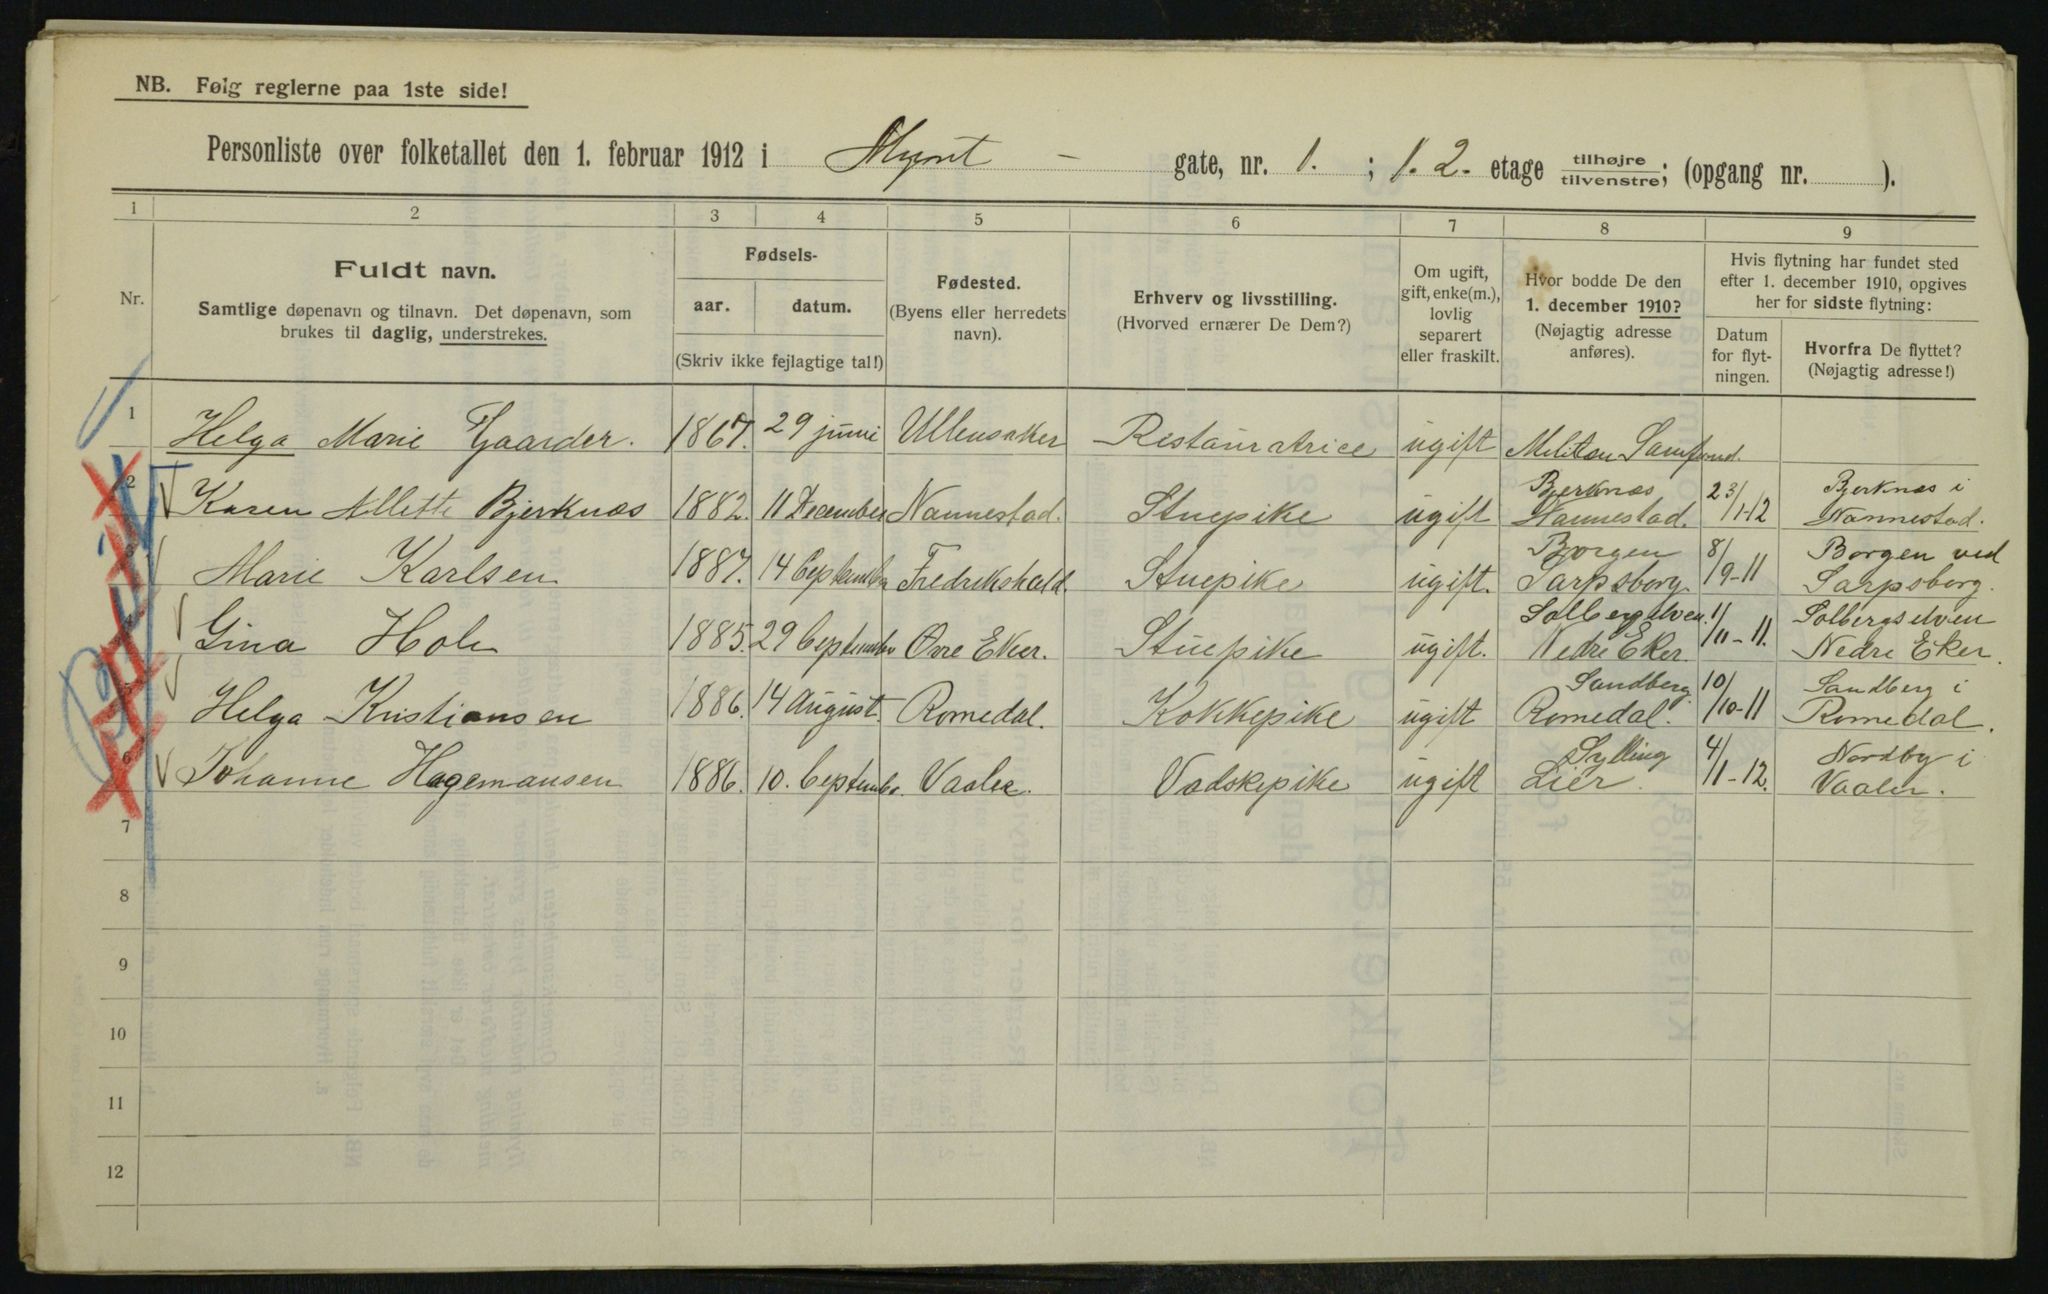 NB. Følg reglerne paa 1ste side!
Personliste over folketallet den 1. februar 1912 i Mynt - gate, nr. 1. ; 1. 2. etage tilhøjre tilvenstre; (opgang nr. ).
1 2 3 4 5 6 7 8 9
Nr.
Fuldt navn.
Samtlige døpenavn og tilnavn. Det døpenavn, som
brukes til daglig, understrekes.
Fødsels-
aar. datum.
(Skriv ikke fejlagtige tal!)
Fødested.
(Byens eller herredets
navn).
Erhverv og livsstilling.
(Hvorved ernærer De Dem?)
Om ugift,
gift, enke(m.),
lovlig
separert
eller fraskilt.
Hvor bodde De den
1. december 1910?
(Nøjagtig adresse
anføres).
Hvis flytning har fundet sted
efter 1. december 1910, opgives
her for sidste flytning:
Datum
for flyt-
ningen.
Hvorfra De flyttet?
(Nøjagtig adresse!)
1 Helga Marie Gaarder. 1867. 29 juni Ullensaker Restauratrice ugift Militær Samfund.
2 Karen Allette Bjerknæs 1882. 11 December Nannestad. Stuepike ugift Bjerknæs Nannestad. 23/1-12 Bjerknæs i Nannestad.
3 Marie Karlsen 1887. 14 September Fredrikshald. Stuepike ugift. Borgen Sarpsborg. 8/9-11 Borgen ved Sarpsborg.
Gina Hole 1885. 29 September Øvre Eker. Stuepike ugift. Solbergelven Nedre Eker. 11/11-11. Solbergselven Nedre Eker.
5 Helga Kristiansen 1886. 14 August. Romedal. Kokkepike ugift Sandberg Romedal. 10/10-11 Sandberg i Romedal.
6 Johanne Hagemansen 1886. 10. September. Vaaler. Vaskepike ugift Sylling Lier. 4/11-12. Nordby i Vaaler.
7
8
9
10
11
12